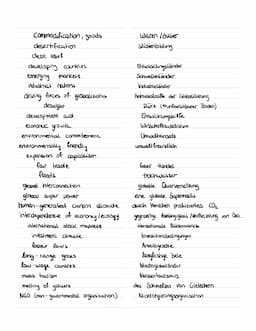 Commodification, goods Waren/Güter
desertification Wüstenbildung
debt relief
developing countries Entwicklungsländer
emerging markets Schwellenländer
industrial nations Industrieländer
driving forces of globalization der Globalisierung
drought Dürre
development aid Entwicklungshilfe
economic growth Wirtschaftswachstum
environmental commitment Umwelteinsatz
environmentally friendly umweltfreundlich
expansion of capitalism
fair trade fairer Handel
floods Hochwasser
global interconnection globale Quervernetzung
global super power eine globale Supermacht
human-generated carbon dioxide durch Menschen produziertes CO2
interdependence of economy/ecology gegenseitige Abhängigkeit
international stock markets internationale
investment climate Investitionsbedingungen
labour laws Arbeitsgesetze
long-range goals langfristige Ziele
low-wage countries Niedriglohnländer
mass tourism Massentourismus
melting of glaciers das Schmelzen von Gletschern
NGO (non-governmental organisation) Nichtregierungsorganisation